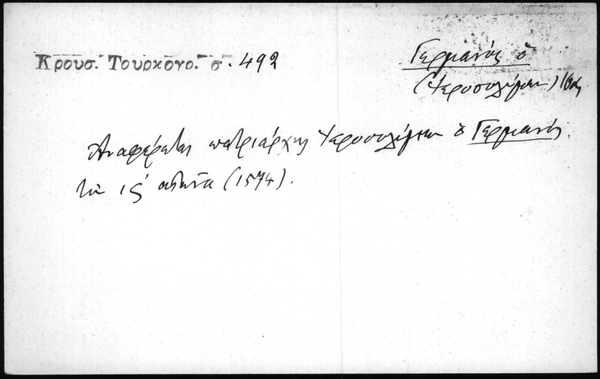 Κρουσ. Τουρκογρ. σ. 492
Γερμανός ο
(Ιεροσολύμων)
Αναφέρεται πατριάρχης Ιεροσολύμων ο Γερμανός
τον ις' αιώνα (1574).